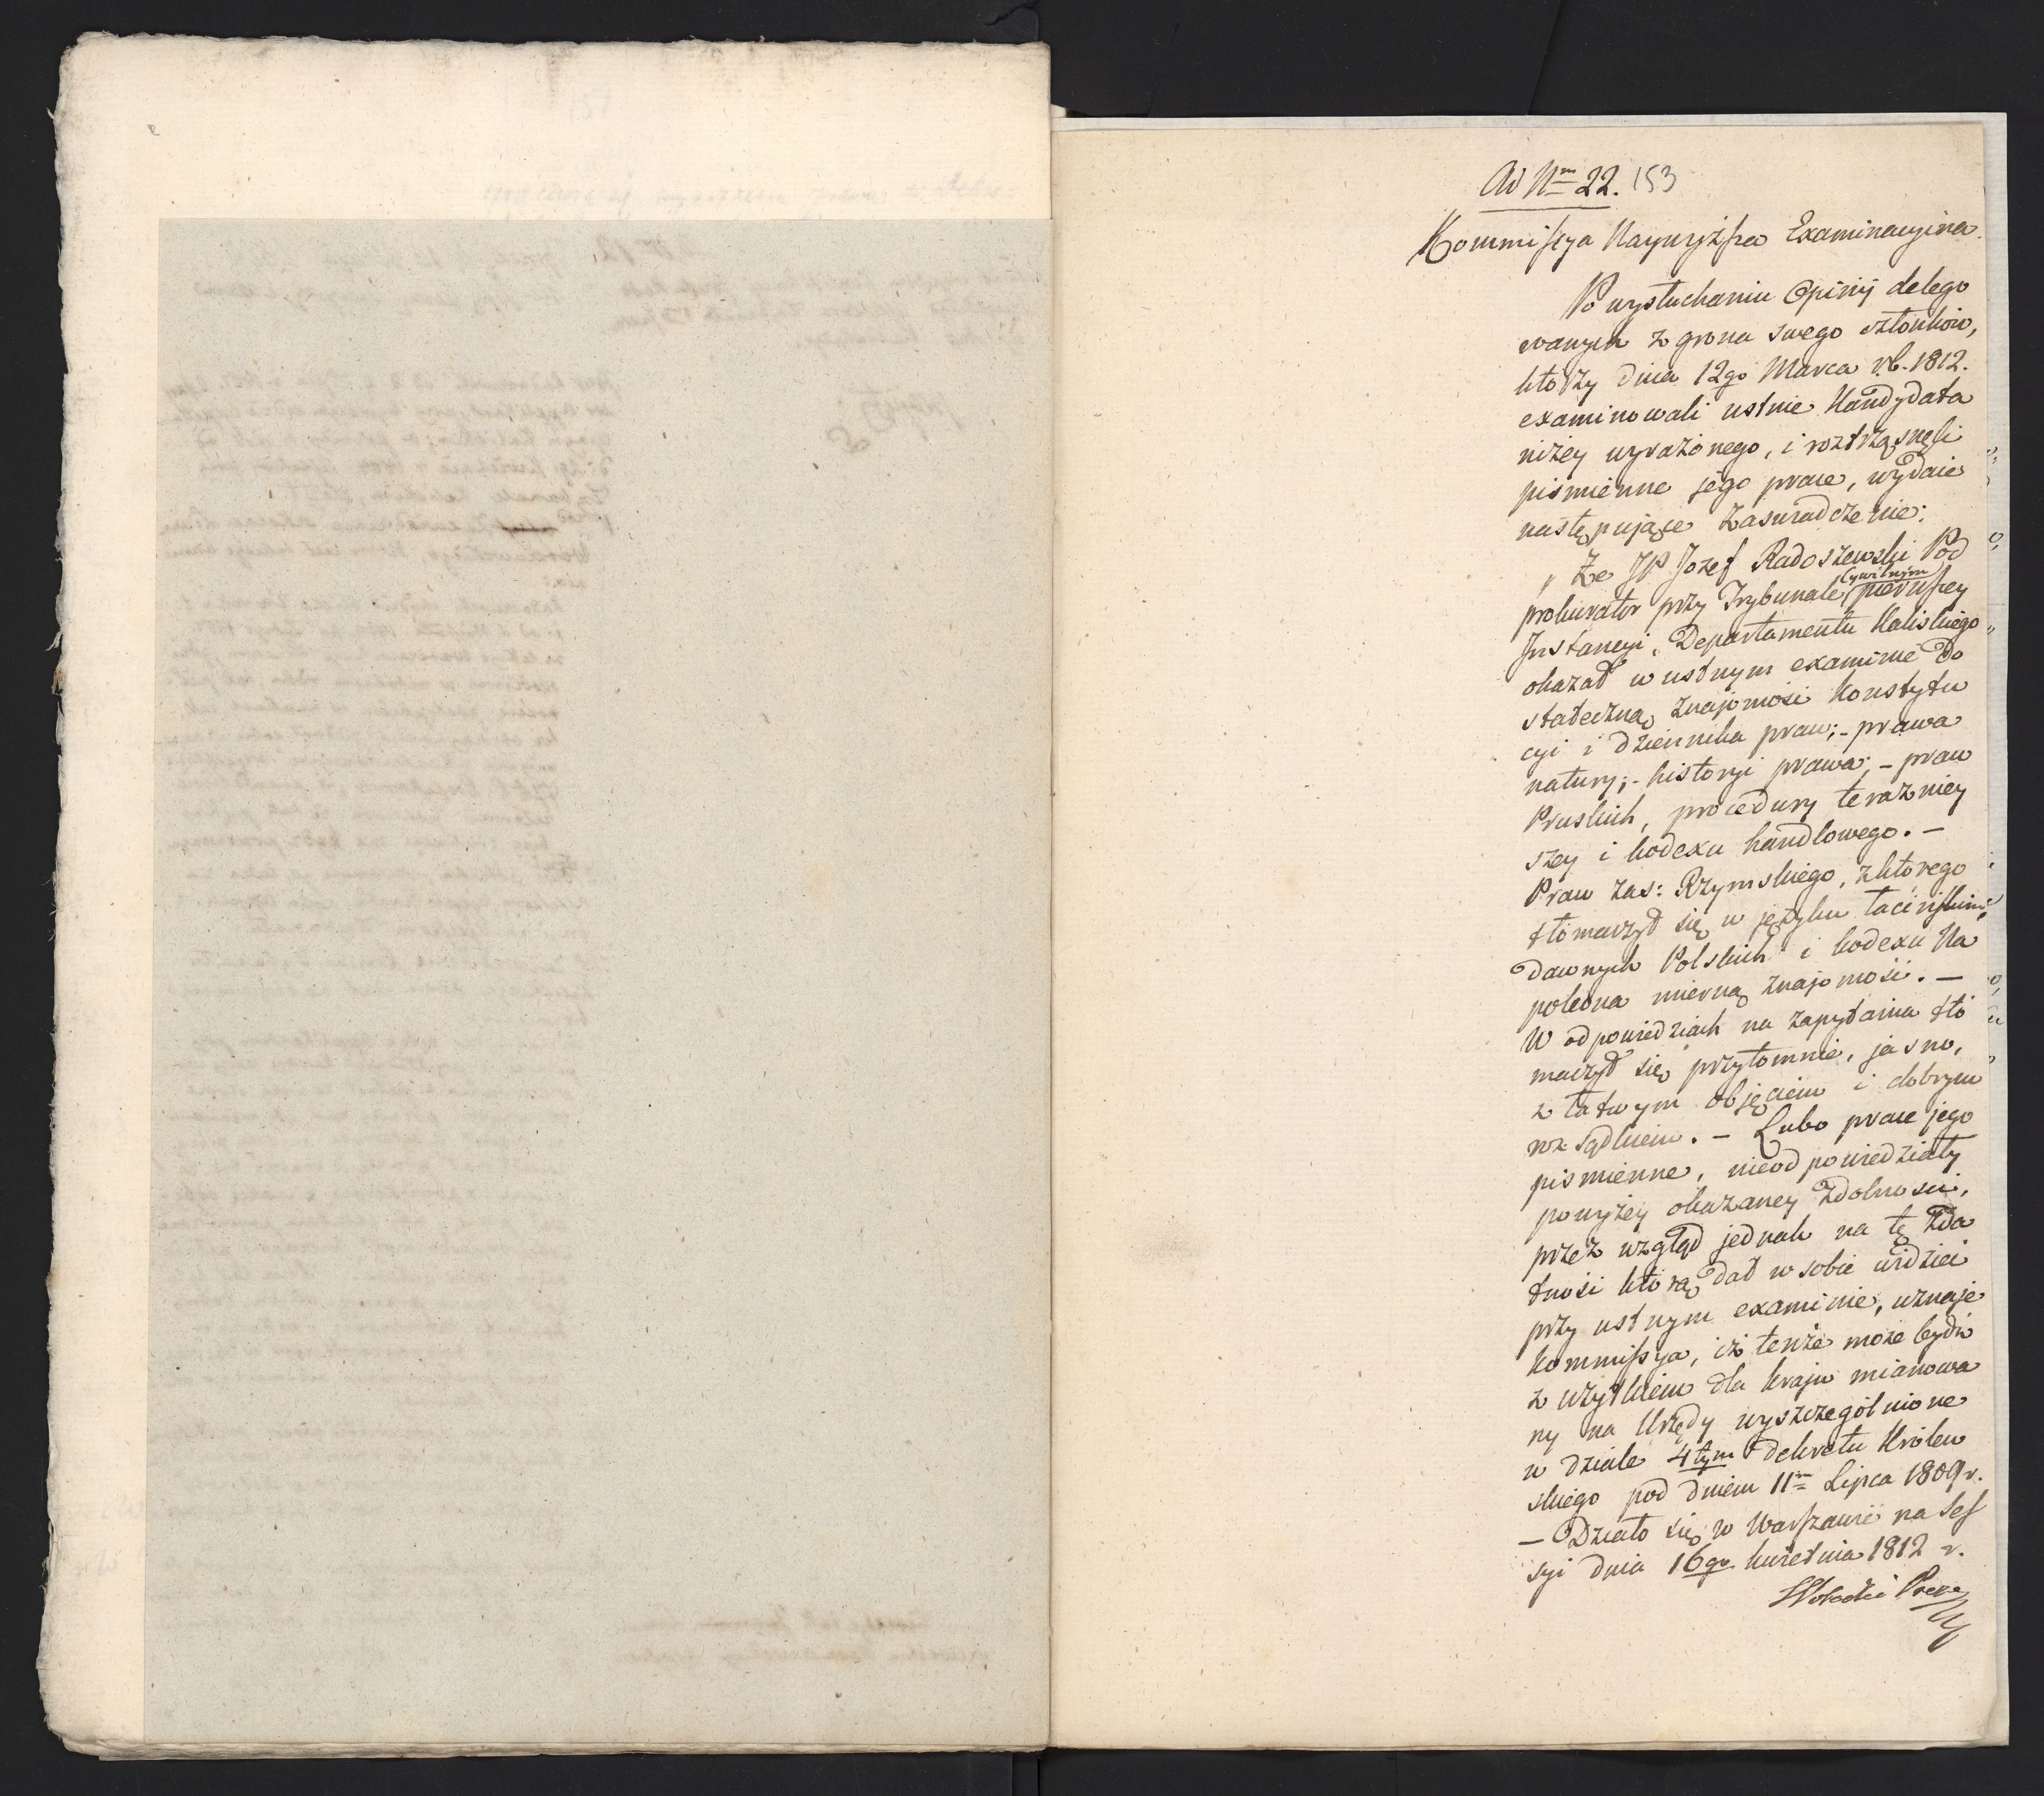 Ad Nm 22. 153
Kommissya Naywyższa Examinacyina.
Po wysłuchaniu Opinij delego
wanych z grona swego członków,
którzy dnia 12go Marca r.b. 1812.
examinowali ustnie Kandydata
niżey wyrażonego, i roztrząsnęli
piśmienne jego prace, wydaie
następujące Zaświadczenie:
Że JP Jozef Radoszewski Pod
prokurator przy Trybunale Cywilnym pierwszey
Instancyi, Departamentu Kaliskiego
okazał w ustnym examinie do
stateczną znajomość Konstytu
cyi i dziennika praw; - prawa
natury; - historyi prawa; - praw
Pruskich, procedury teraźniey
szey i kodexu handlowego. -
Praw zaś: Rzymskiego, z którego
tłómaczył się w języku łacińskim
dawnych Polskich i kodexu Na
poleona mierną znajomość. -
W odpowiedziach na zapytania tłó
maczył się przytomnie, jasno,
z łatwym objęciem i dobrym
rozsądkiem. - Lubo prace jego
piśmienne, nieodpowiedziały
powyżey okazaney zdolności,
przez wzgląd jednak na tę zda
tność którą dał w sobie widzieć
przy ustnym examinie, uznaje
Kommissya, iż tenże może bydź
z użytkiem dla kraju mianowa
ny na Urzędy wyszczególnione
w dziale 4tym Dekretu Królew
skiego pod dniem 11m Lipca 1809 r.
- Działo się w Warszawie na Ses
syi dnia 16go kwietnia 1812 r.